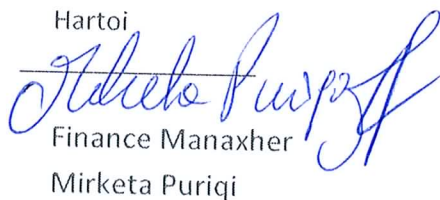 Hartoi
Mirketa Puriqi
Finance Manaxher
Mirketa Puriqi